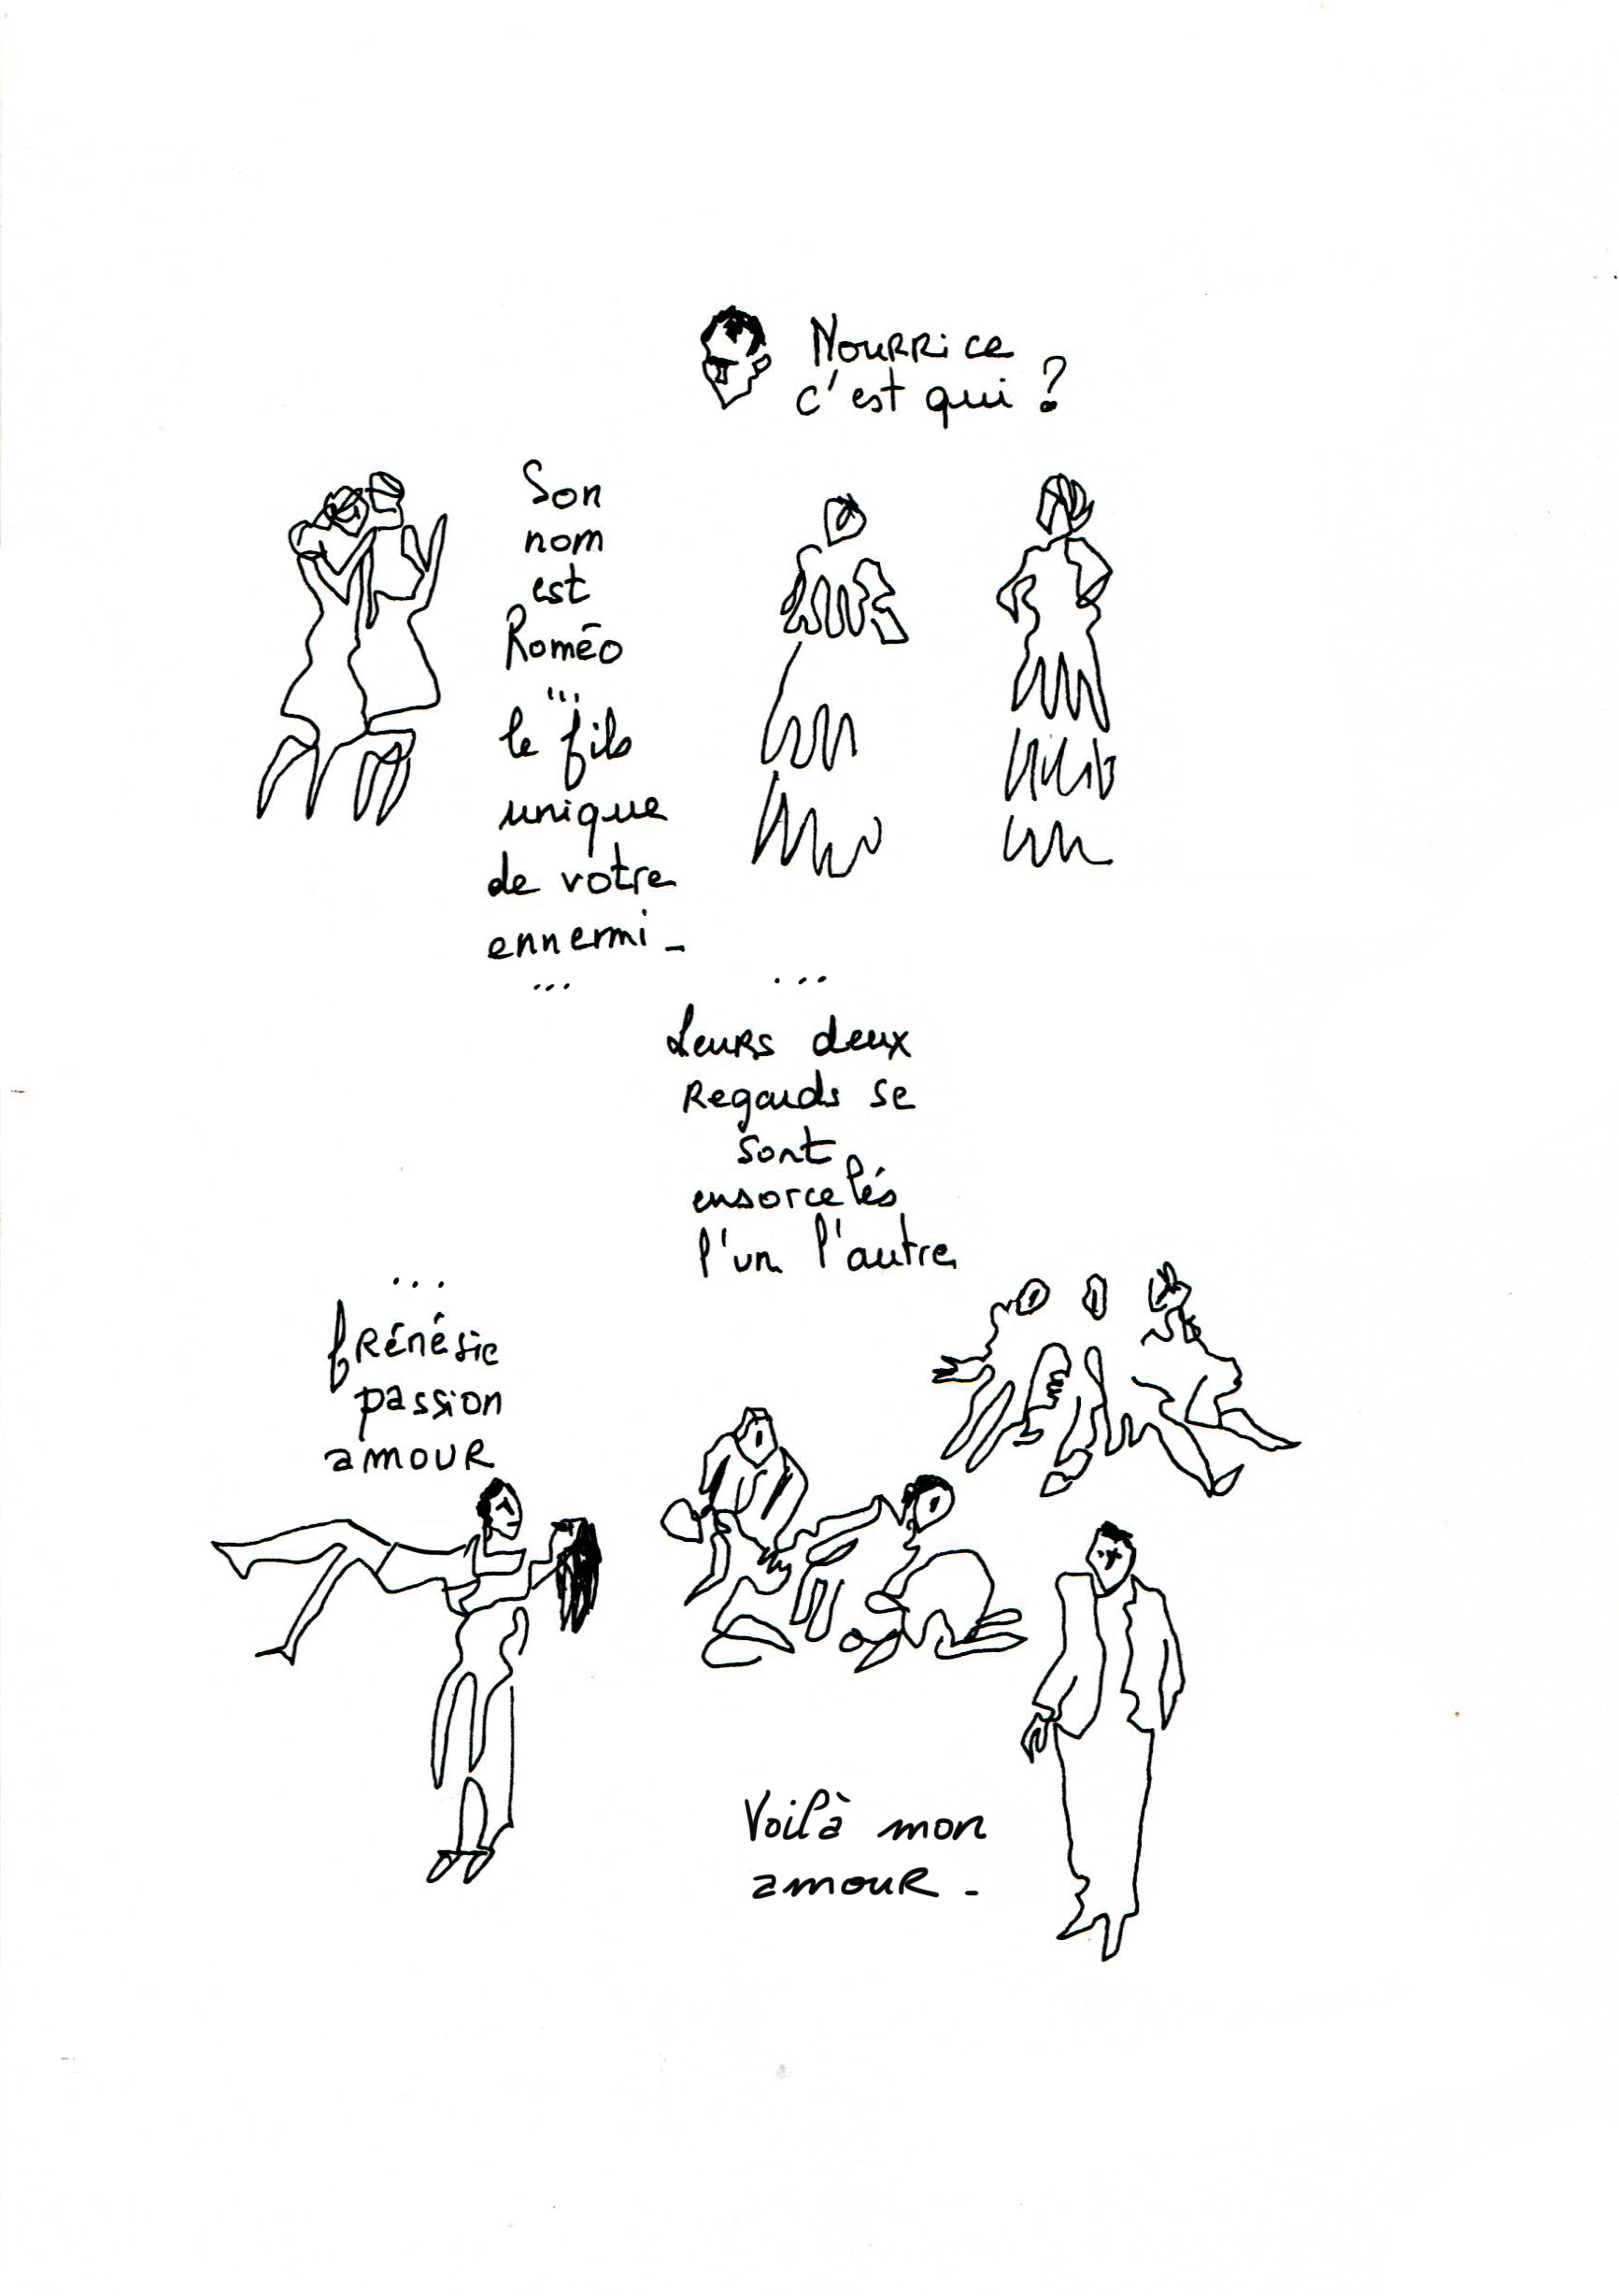 Nourrice
c'est qui ?
Son
nom
est
Roméo
...
le fils
unique
de votre
ennemi -
...
...
Leurs deux
Regards se
sont
ensorcelés
l'un l'autre
...
frénésie
passion
amour
Voilà mon
amour -